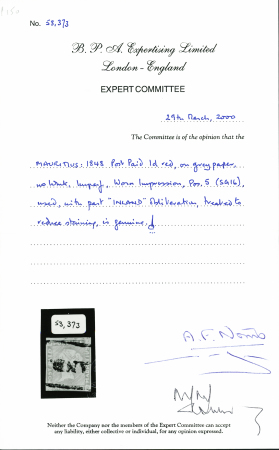 No. 58,373
B. P. A. Expertising Limited
London - England
EXPERT COMMITTEE
29th March, 2000
The Committee is of the opinion that the
MAURITIUS: 1848 Post Paid 1d red, on grey paper,
no wmk, Imperf, Worn Impression, Pos. 5 (SG16),
used, with part "INLAND" obliteration, treated to
reduce staining, is genuine.
58,373
Neither the Company nor the members of the Expert Committee can accept
any liability, either collective or individual, for any opinion expressed.